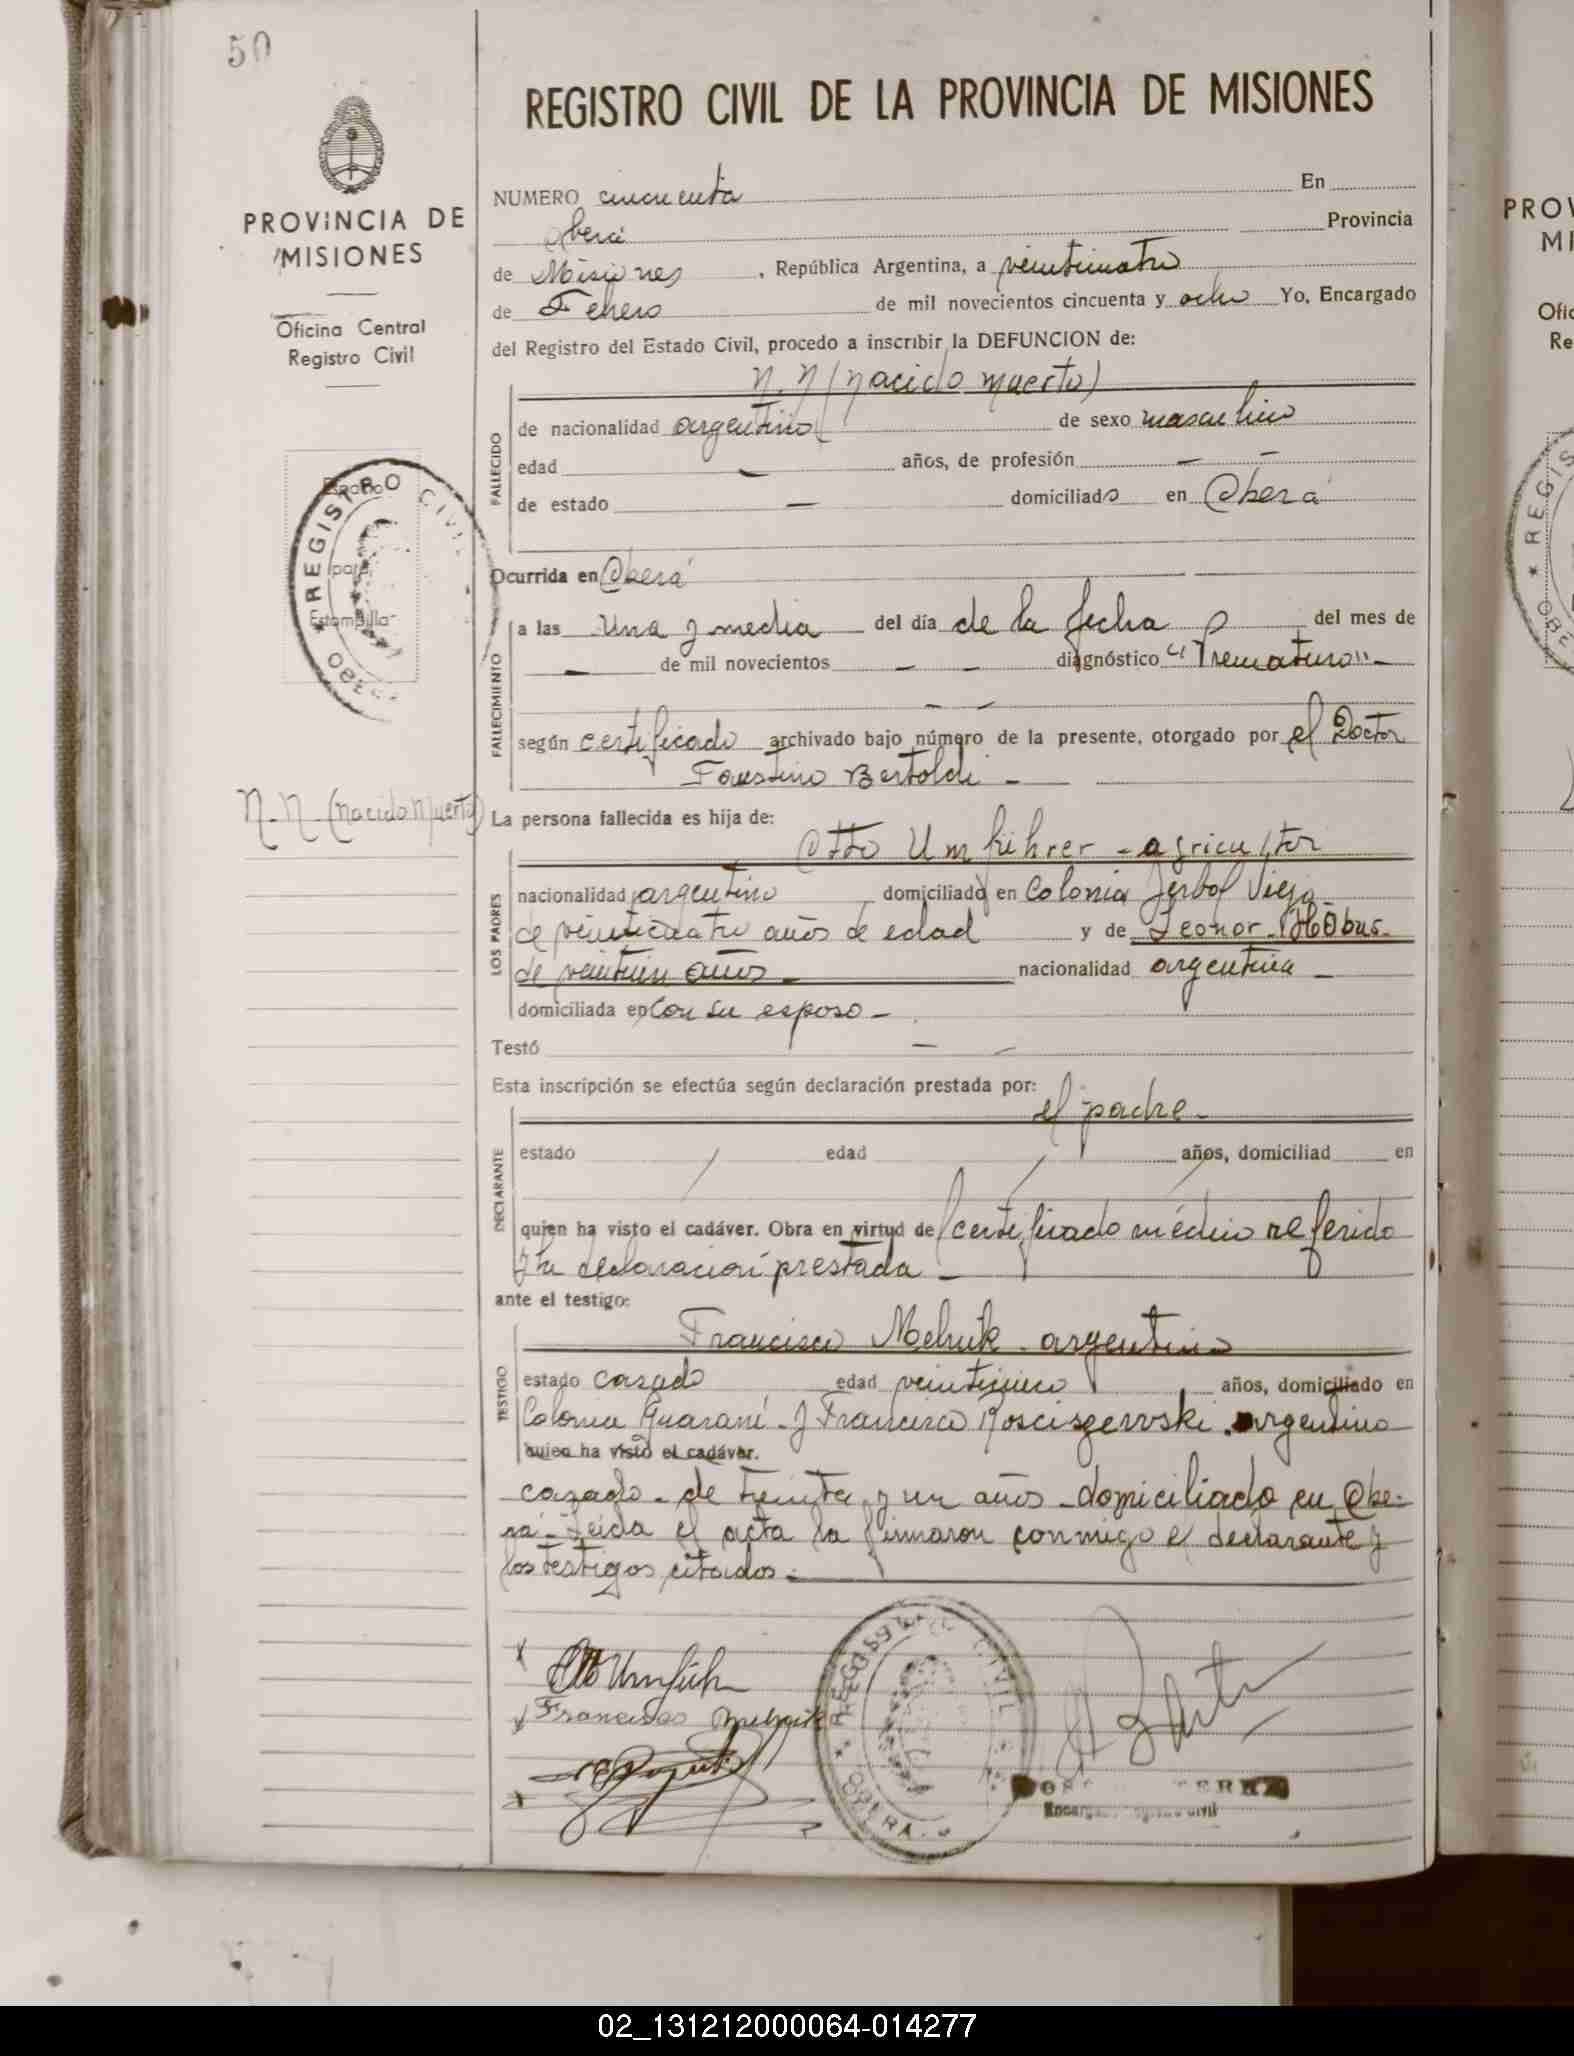 50
REGISTRO CIVIL DE LA PROVINCIA DE MISIONES
PROVINCIA DE
MISIONES
Oficina Central
Registro Civil
NUMERO cincuenta En
Oberá Provincia
de Misiones, República Argentina, a veinticuatro
de Febrero de mil novecientos cincuenta y ocho Yo, Encargado
del Registro del Estado Civil, procedo a inscribir la DEFUNCION de:
N. N (nacido muerto)
FALLECIDO
de nacionalidad argentino de sexo masculino
edad — años, de profesión — —
de estado — domiciliado en Oberá
Espacio
para
Estampilla
REGISTRO CIVIL
Ocurrida en Oberá
FALLECIMIENTO
a las una y media del día de la fecha del mes de
— de mil novecientos — — diagnóstico "Prematuro" -
— —
según certificado archivado bajo número de la presente, otorgado por el Doctor
Faustino Bertoldi -
N. N (nacido Muerto)
La persona fallecida es hija de:
LOS PADRES
Otto Umführer - agricultor
nacionalidad argentino domiciliado en Colonia Yerbal Viejo
de veinticuatro años de edad y de Leonor Höbus -
de veintiún años - nacionalidad argentina -
domiciliada en con su esposo -
Testó — —
Esta inscripción se efectúa según declaración prestada por:
el padre -
DECLARANTE
estado / edad / años, domiciliad en
quien ha visto el cadáver. Obra en virtud de certificado médico referido
y la declaración prestada -
ante el testigo:
Francisco Melnik - argentino
TESTIGO
estado casado edad veinticinco años, domiciliado en
Colonia Guaraní - y Francisco Rosciszewski. argentino
quien ha visto el cadáver.
casado - de treinta y un años - domiciliado en Obe-
rá - Leida el acta la firmaron conmigo el declarante y
los testigos citados. -
Otto Umfüh
Francisco Melnik
REGISTRO CIVIL
OBERA
Encargado Registro Civil
PROV
MI
Ofic
Re
02_131212000064-014277